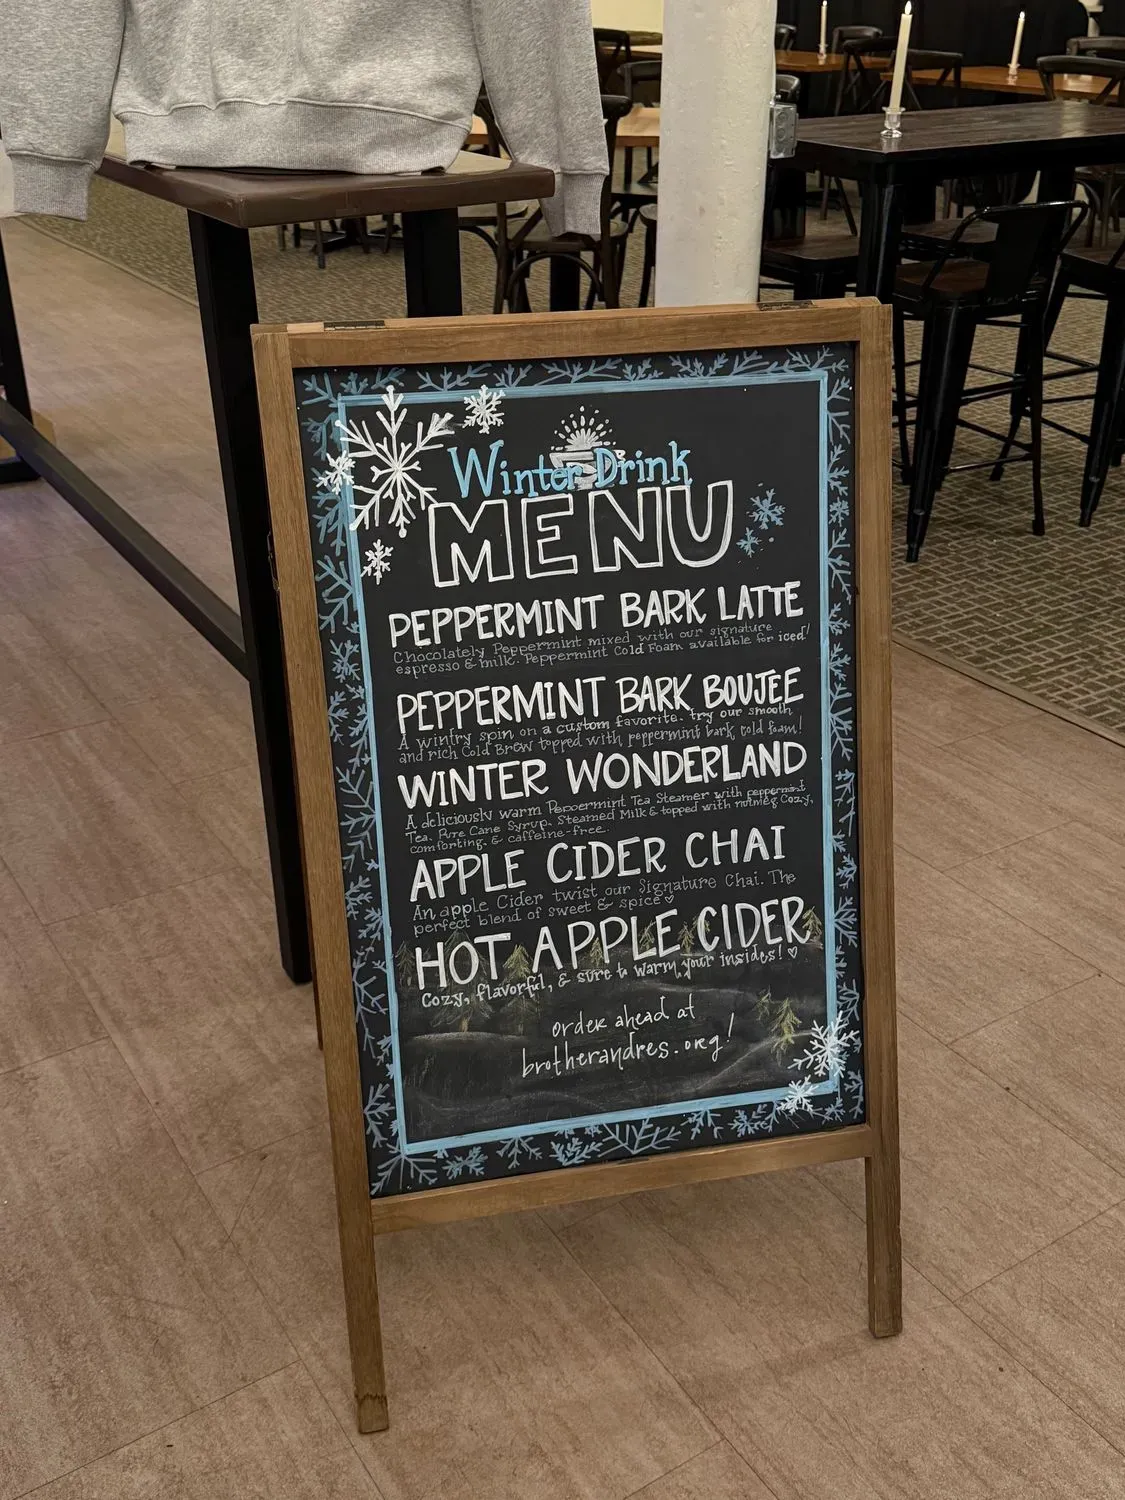 Winter Drink
MENU
PEPPERMINT BARK LATTE
Chocolately Peppermint mixed with our signature
espresso & milk. Peppermint Cold Foam available for iced!
PEPPERMINT BARK BOUJEE
A wintry spin on a custom favorite. try our smooth
and rich Cold Brew topped with peppermint bark cold foam!
WINTER WONDERLAND
A deliciously warm Peppermint Tea Steamer with peppermint
Tea, Pure Cane Syrup, Steamed Milk & topped with nutmeg. Cozy,
comforting, & caffeine-free.
APPLE CIDER CHAI
An apple Cider twist our Signature Chai. The
perfect blend of sweet & spice ♡
HOT APPLE CIDER
Cozy, flavorful, & sure to warm your insides! ♡
order ahead at
brotherandres.org!